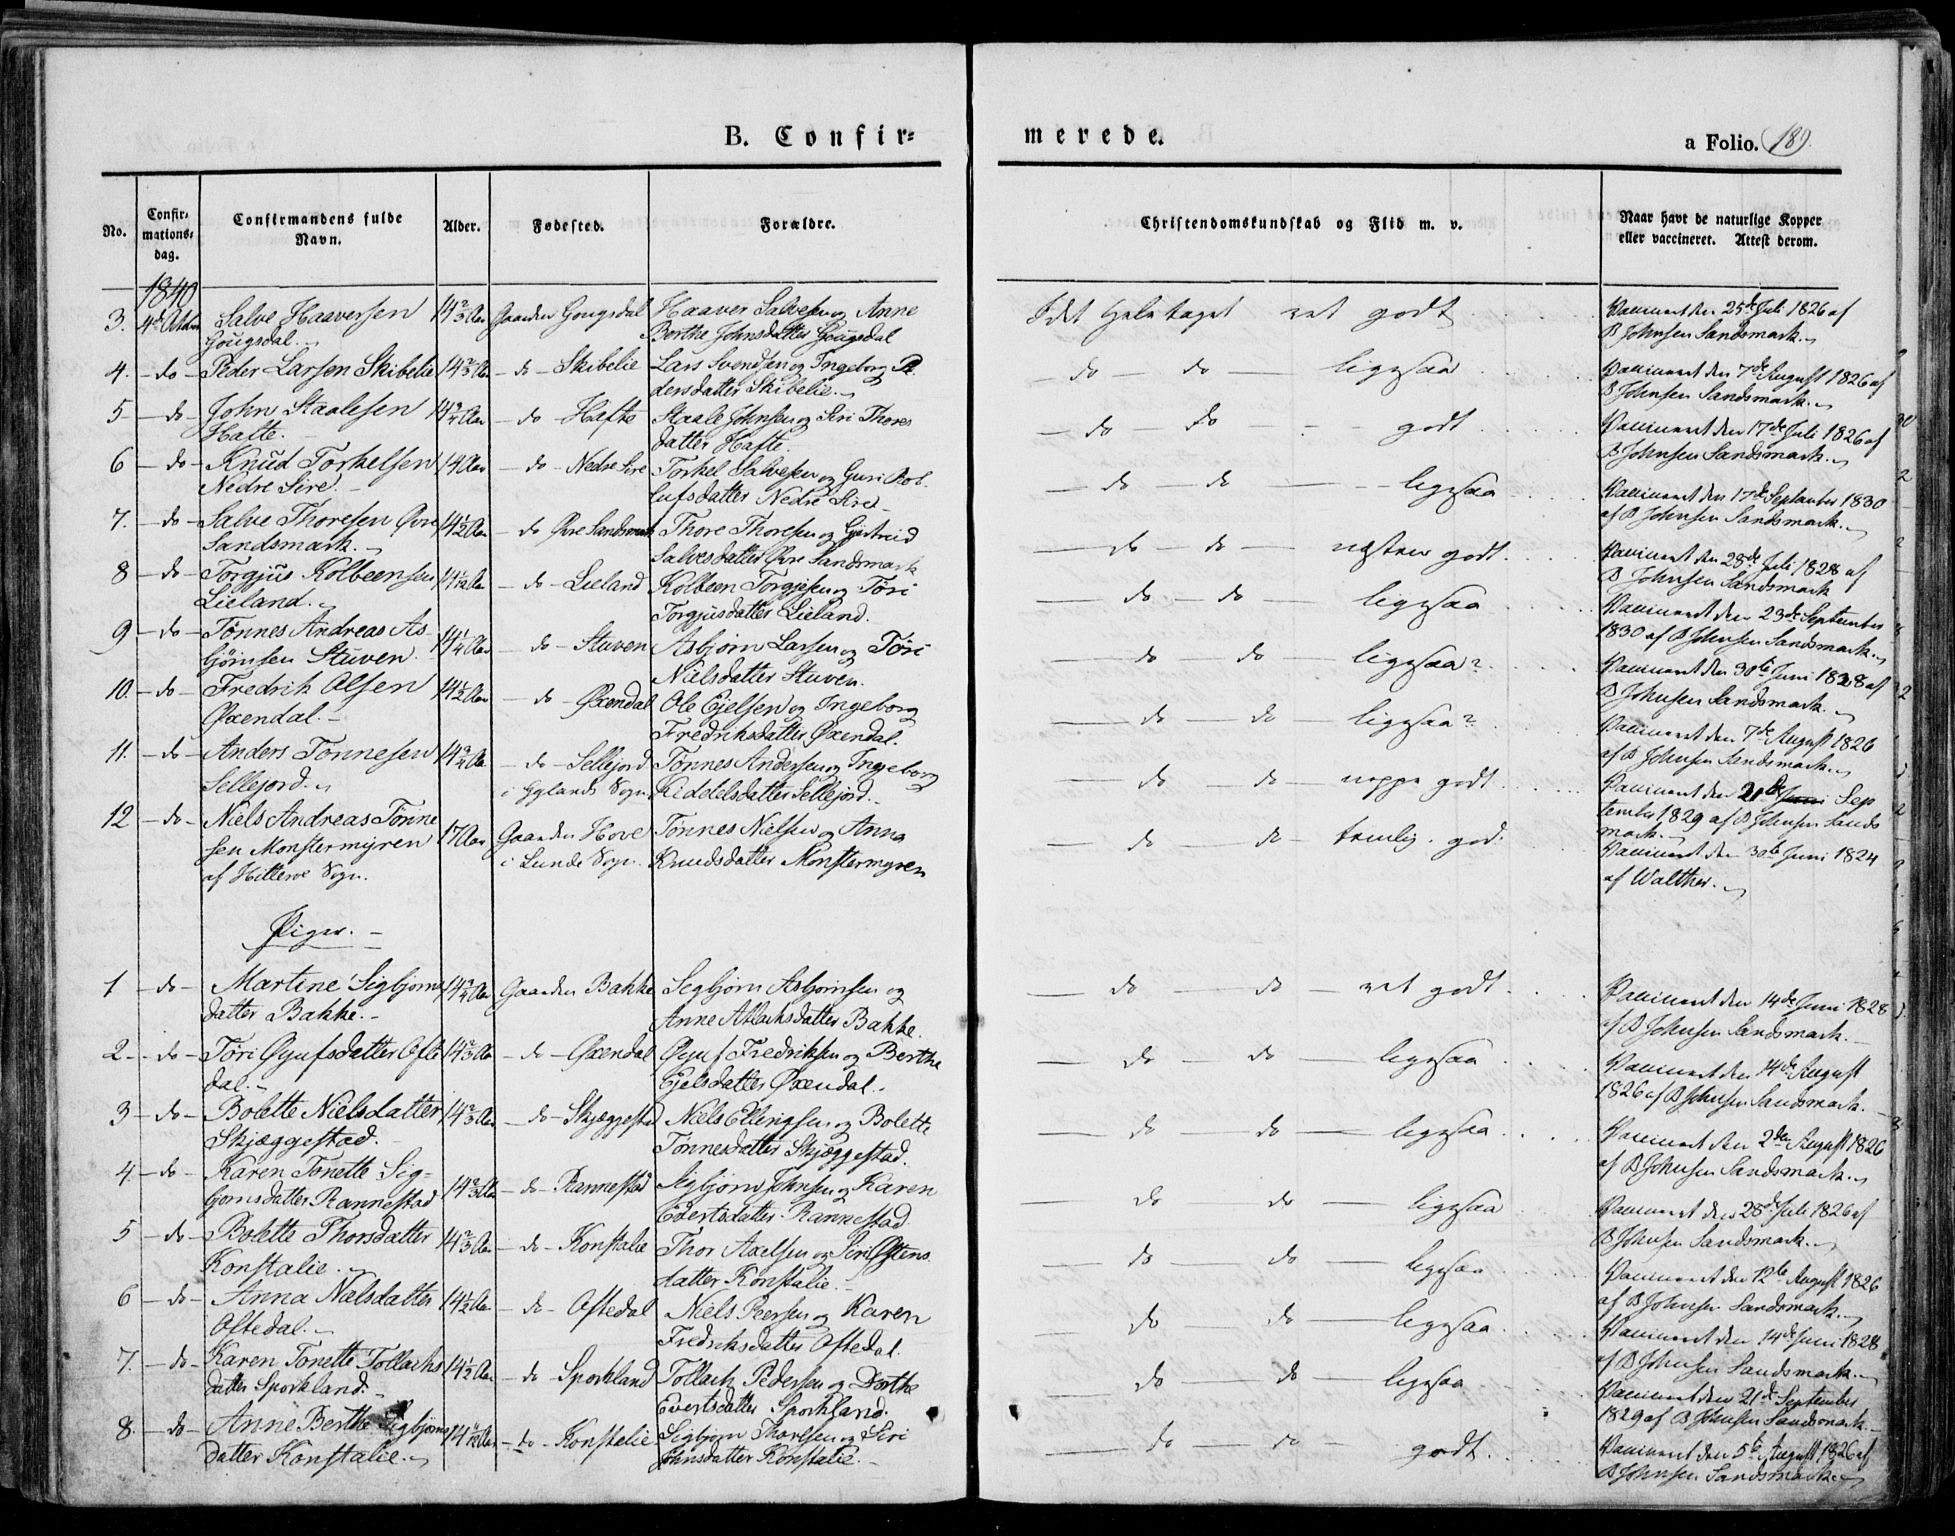 B. Confir=
merede.
a Folio. 189.
No.
Confir-
mations-
dag.
Confirmandens fulde
Navn.
Alder.
Fødested.
Forældre.
Christendomskundskab og Flid m. v.
Naar havt de naturlige Kopper
eller vaccineret. Attest derom.
1840
3. 4de October Salve Haaversen 14 2/3 Aar Gaarden Gougsdal Haaver Salvesen og Anne I det Hele taget ret godt Vaccineret den 25de Juli 1826 af
Gougsdal. Berthe Johnsdatter Gougsdal B Johnsen Sandsmark.
4. - do - Peder Larsen Skibelie 14 2/3 Aar - do - Skibelie Lars Svendsen og Ingeborg Pe- - do - do - ligesaa Vaccineret den 7de August 1826 af
dersdatter Skibelie. B Johnsen Sandsmark.
5 - do John Staalesen 14 3/4 Aar - do Hafte Staale Johnsen og Siri Thores - do do - godt Vaccineret den 17de Juli 1826 af
Hafte. datter Hafte. B Johnsen Sandsmark.
6 - do - Knud Torkelsen 14 Aar - do - Nedre Sire Torkel Salvesen og Guri Rol- - do - do - ligesaa Vaccineret den 17de September 1830
Nedre Sire. lufsdatter Nedre Sire af B Johnsen Sandsmark.
7. - do - Salve Thoresen Øvre 14 1/2 Aar - do Øvre Sandsmark Thore Thoresen og Gjertruid - do - do - næsten godt. Vaccineret den 28de Juli 1828 af
Sandsmark. Salvesdatter Øvre Sandsmark B Johnsen Sandsmark
8 - do - Torgjus Kolbeensen - do - Lieland Kolbeen Torgjesen og Tøri - do - do - ligesaa Vaccineret den 23de September
Lieland. Torgjusdatter Lieland. 1830 af B Johnsen Sandsmark.
9 - do - Tønnes Andreas As- 14 1/4 Aar - do - Stuven Asbjørn Larsen og Tøri - do - do - ligesaa? Vaccineret den 30te Juni 1828 af
bjørnsen Stuven Nielsdatter Stuven. B Johnsen Sandsmark.
10. - do - Fredrik Olsen 14 1/2 Aar - do Øxendal Ole Ejelsen og Ingeborg - do - do - ligesaa? Vaccineret den 7de August 1826
Øxendal. Fredriksdatter Øxendal. af B Johnsen Sandsmark.
11. - do - Anders Tønnesen 14 3/4 Aar - do - Sellejord Tønnes Andersen og Ingeborg - do do - neppe godt. Vaccineret den 21de Sep
Sellejord. i Gylands Sogn Kiddelsdatter Sellejord. tember 1829 af B Johnsen Sands
mark.
12 - do - Niels Andreas Tønne 17 Aar Gaarden Hove Tønnes Nielsen og Anna - do do - temlig god. Vaccineret den 30te Juni 1824
sen Monstermyren i Lunde Sogn. Knudsdatter Monstermyren af Walther.
af Hitterøe Sogn.
Piger.
1 - do - Martine Sigbjørns 14 3/4 Aar Gaarden Bakke Segbjørn Asbjørnsen og - do - do - ret godt. Vaccineret den 14de Juni 1828
datter Bakke. Anne Atlaksdatter Bakke. af B Johnsen Sandsmark.
2 - do - Tøri Øyufsdatter Ofte 14 2/3 Aar - do - Øxendal Øyuf Fredriksen og Berthe - do - do - ligesaa Vaccineret den 14de August
dal. Ejelsdatter Øxendal. 1826 af B Johnsen Sandsmark.
3 - do - Bolette Nielsdatter 14 2/3 Aar - do - Skjæggestad Niels Ellingsen og Bolette - do do - ligesaa Vaccineret den 2den August 1826
Skjæggestad. Tønnesdatter Skjæggestad. af B Johnsen Sandsmark.
4. - do - Karen Tonette Sig- 14 2/3 Aar - do - Rannestad Sigbjørn Johnsen og Karen - do do - ligesaa Vaccineret den 28de Juli 1826 af
bjørnsdatter Rannestad Edertsdatter Rannestad B Johnsen Sandsmark.
5 - do - Bolette Thorsdatter 14 2/3 Aar - do - Konstalie Thor Axelsen og Siri Østens - do do - ligesaa Vaccineret den 12te August 1826
Konstalie. datter Konstalie. af B Johnsen Sandsmark.
6 - do - Anna Nielsdatter 14 1/2 Aar - do - Oftedal Niels Peersen og Karen - do do - ligesaa. Vaccineret den 14de Juni 1828
Oftedal. Fredriksdatter Oftedal. af B Johnsen Sandsmark.
7. - do - Karen Tonette Tollachs 14 1/2 Aar - do Sporkland Tollach Pedersen og Dorthe - do do - ligesaa Vaccineret den 21de September
datter Sporkland. Evertsdatter Sporkland. 1829 af B Johnsen Sandsmark.
8. - do - Anne Berthe Sigbjørns - do - Konstelie Sigbjørn Thorelsen og Siri - do - do - godt. Vaccineret den 5te August 1826 af
datter Konstalie. Johnsdatter Konstalie. B Johnsen Sandsmark.